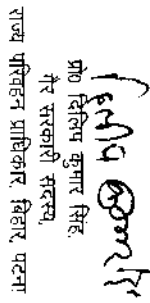 दिलीप कुमार
प्रो० दिलिप कुमार सिंह,
गैर सरकारी सदस्य,
राज्य परिवहन प्राधिकार, बिहार, पटना।